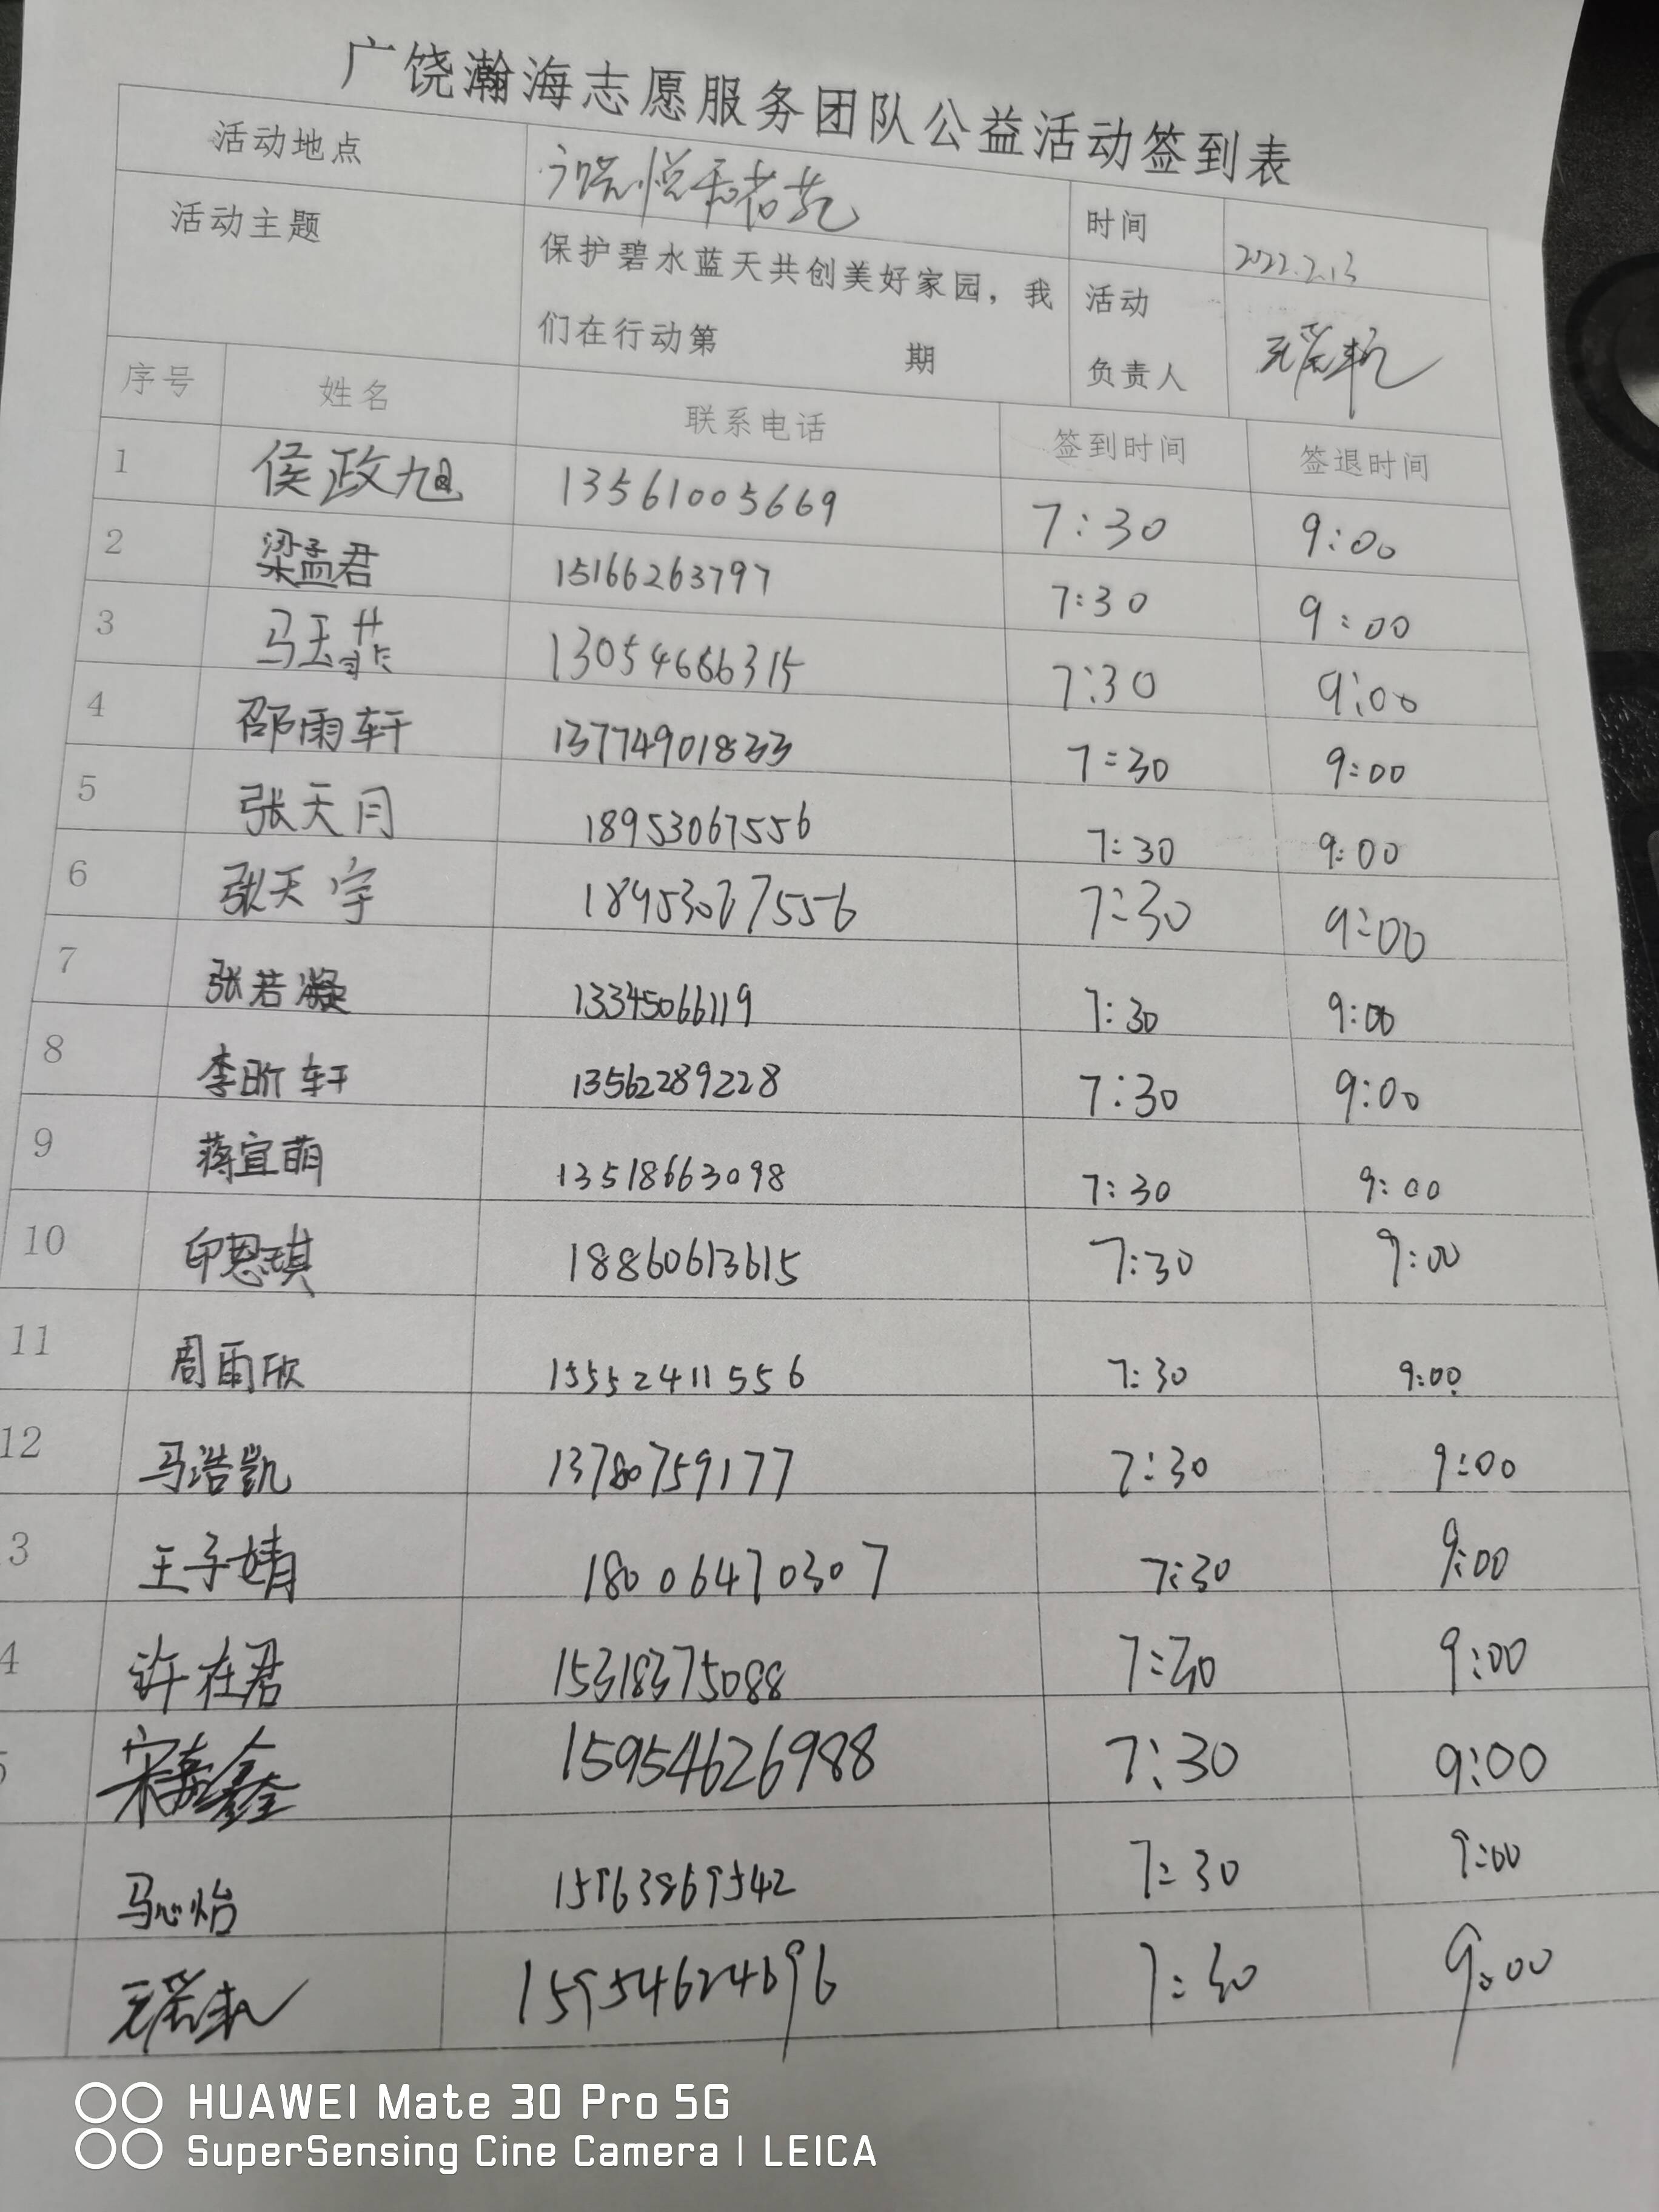 广饶瀚海志愿服务团队公益活动签到表
活动地点 广饶悦和老苑 时间 2022.2.13
活动主题 保护碧水蓝天共创美好家园，我们在行动第 期 活动负责人
序号 姓名 联系电话 签到时间 签退时间
1 侯政旭 13561005669 7:30 9:00
2 梁孟君 15166263797 7:30 9:00
3 马玉 13054686315 7:30 9:00
4 邵雨轩 13774901833 7:30 9:00
5 张天月 18953067556 7:30 9:00
6 张天宇 18953067556 7:30 9:00
7 张若凝 13345066119 7:30 9:00
8 李昕轩 13562289228 7:30 9:00
9 蒋宜萌 13518663098 7:30 9:00
10 印恩琪 18860613615 7:30 9:00
11 周雨欣 15552411556 7:30 9:00
12 马浩凯 13780759177 7:30 9:00
3 王子婧 18006470307 7:30 9:00
4 许在君 15318375088 7:30 9:00
5 宋嘉鑫 15954626988 7:30 9:00
马心怡 15963869542 7:30 9:00
15954624696 7:30 9:00
HUAWEI Mate 30 Pro 5G
SuperSensing Cine Camera | LEICA